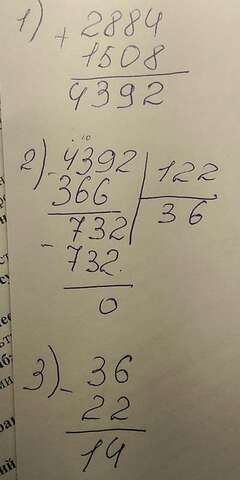 1) + 2884
1508
4392
2) - 4392 | 122
366 | 36
- 732
732
0
3) - 36
22
14